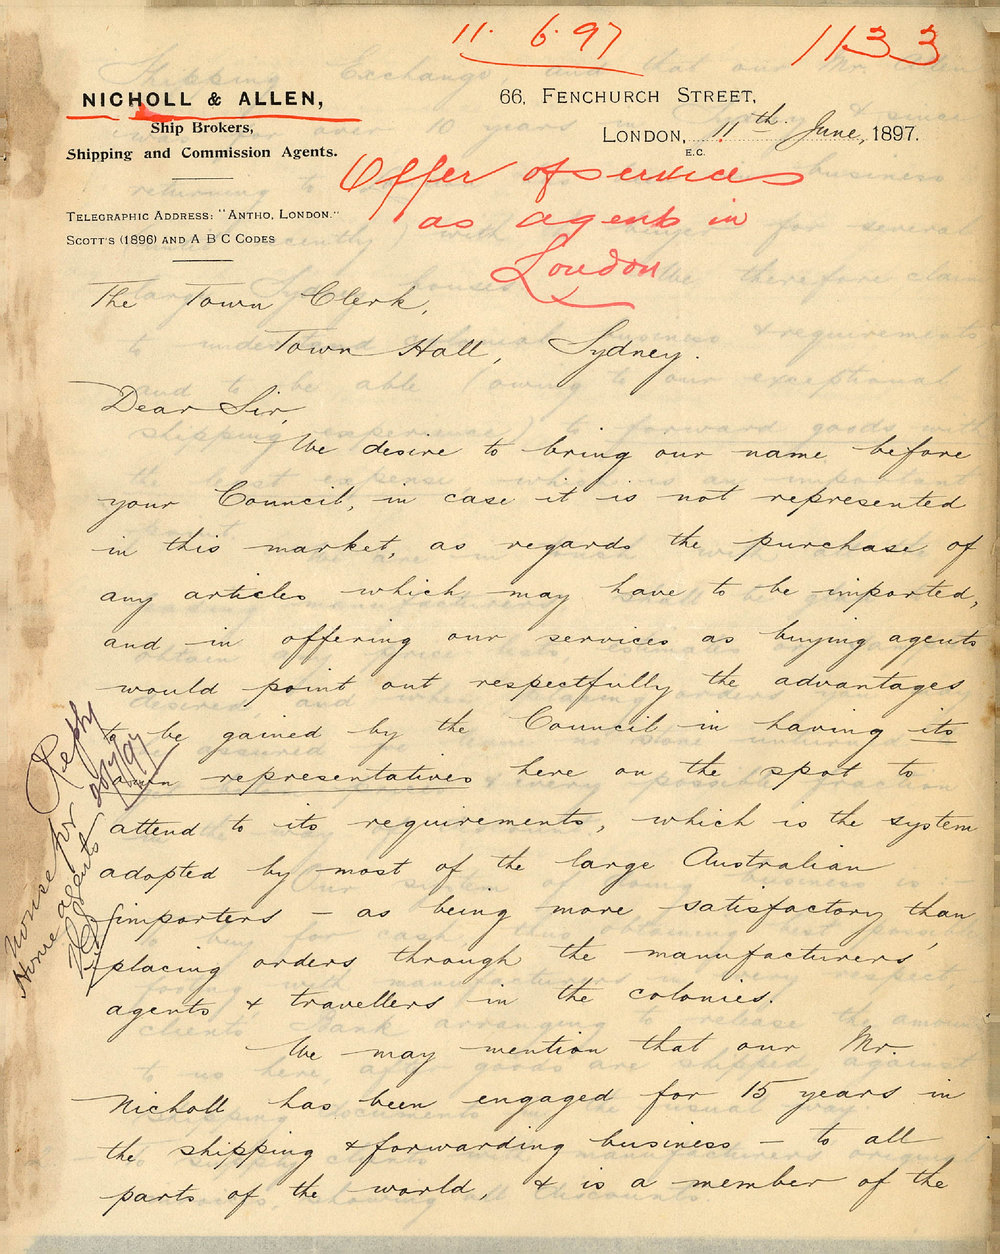 11.6.97
1133
NICHOLL & ALLEN,
Ship Brokers,
Shipping and Commission Agents.
TELEGRAPHIC ADDRESS: "ANTHO, LONDON."
SCOTT'S (1896) AND A B C CODES
66, FENCHURCH STREET,
LONDON, 11th June, 1897.
E.C.
Offer of services
as agent in
London
The Town Clerk,
Town Hall, Sydney.
Dear Sir,
We desire to bring our name before
your Council, in case it is not represented
in this market, as regards the purchase of
any articles which may have to be imported,
and in offering our services as buying agents
would point out respectfully the advantages
to be gained by the Council in having its
own representatives here on the spot to
attend to its requirements, which is the system
adopted by most of the large Australian
importers — as being more satisfactory than
placing orders through the manufacturers,
agents & travellers in the colonies.
We may mention that our Mr.
Nicholl has been engaged for 15 years in
the shipping & forwarding business — to all
parts of the world, & is a member of the
Reply
no use for
Home agents